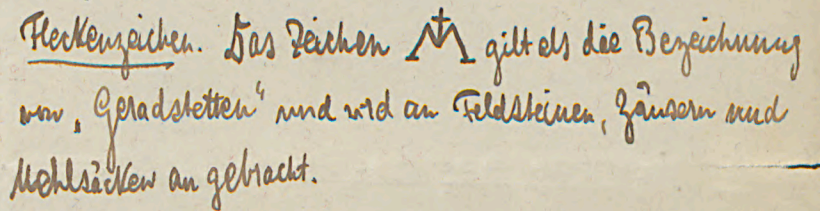 Fleckenzeichen. Das Zeichen gilt als die Bezeichnung
von „Geradstetten“ und wird an Feldsteinen, Häusern und
Mehlsäcken angebracht.